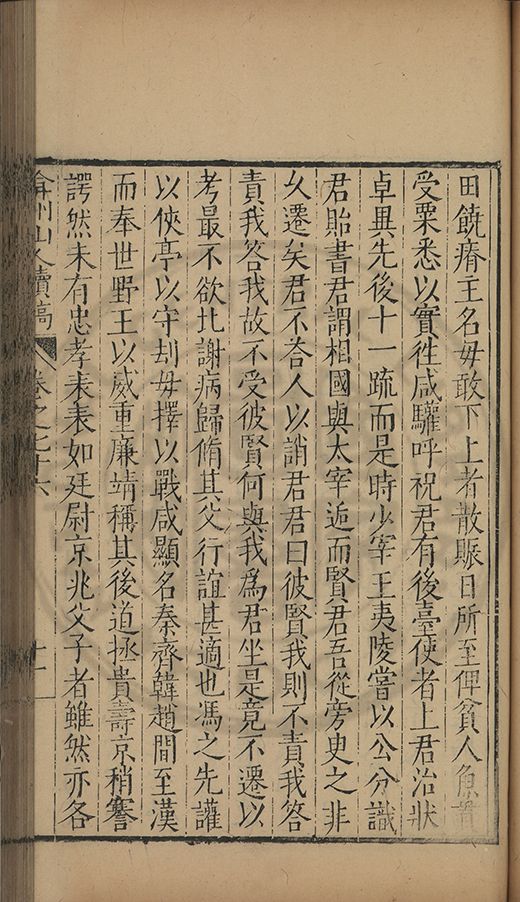 田饒瘠主名毋敢下上者散賑日所至俾貧人魚貫
受粟悉以實徃咸驩呼祝君有後臺使者上君治狀
卓異先後十一疏而是時少宰王夷陵嘗以公分識
君貽書君謂相國與太宰近而賢君吾從旁史之非
乆遷矣君不荅人以誚君君曰彼賢我則不責我答
責我答我故不受彼賢何與我爲君坐是竟不遷以
考最不欲比謝病歸脩其父行誼甚適也馮之先讙
以俠亭以守刦毋擇以戰咸顯名秦齊韓趙間至漢
而奉世野王以威重廉靖稱其後道拯貴壽京稍謇
諤然未有忠孝表表如廷尉京兆父子者雖然亦各
弇州山人續稿 卷之七十六 十二